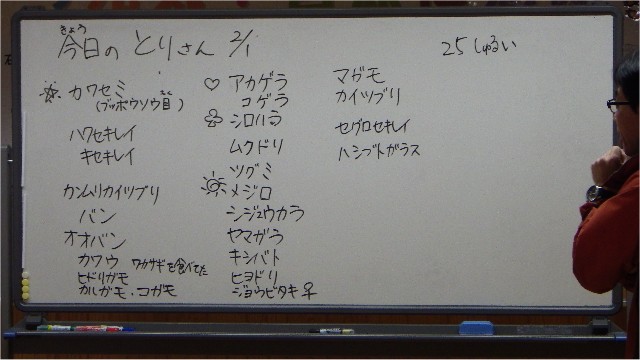 きょう
今日のとりさん 2/1
25しゅるい
カワセミ
(ブッポウソウ目)
ハクセキレイ
キセキレイ
カンムリカイツブリ
バン
オオバン
カワウ ワカサギを食べてた
ヒドリガモ
カルガモ・コガモ
♡ アカゲラ
コゲラ
シロハラ
ムクドリ
ツグミ
メジロ
シジュウカラ
ヤマガラ
キジバト
ヒヨドリ
ジョウビタキ♀
マガモ
カイツブリ
セグロセキレイ
ハシブトガラス